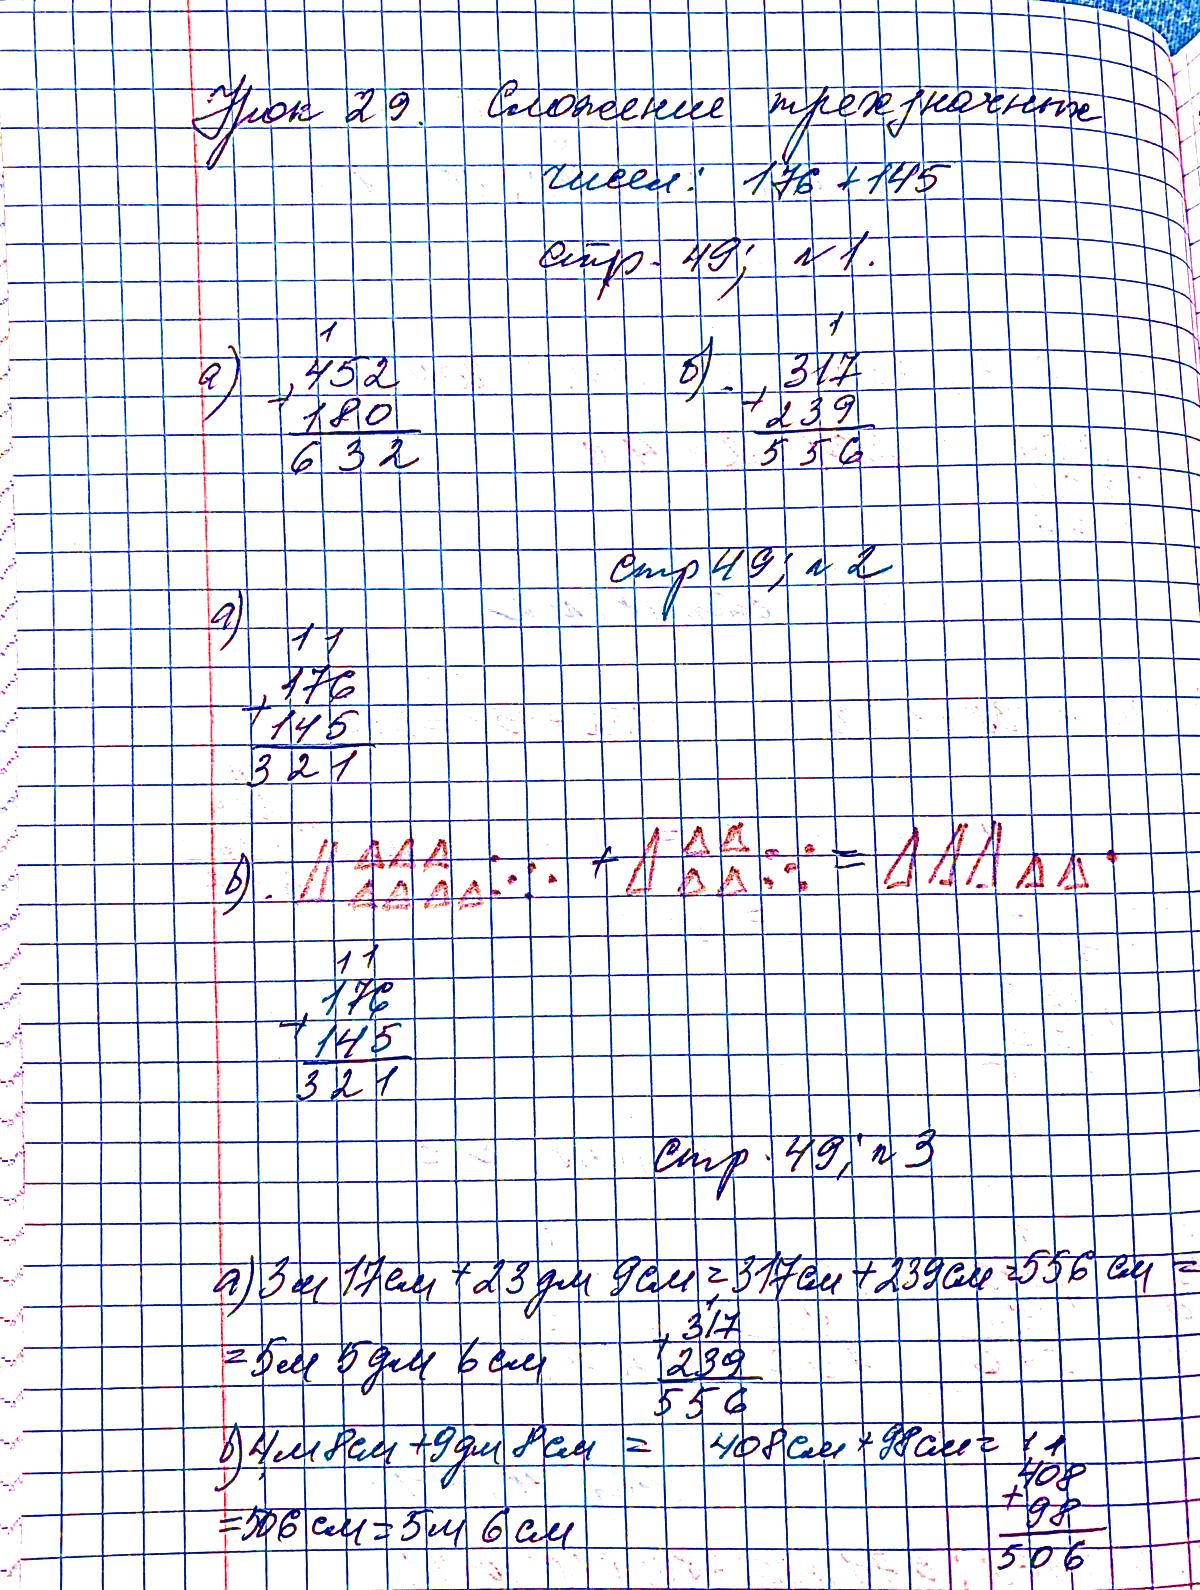 Урок 29. Сложение трехзначных
чисел: 176 + 145
стр. 49; н 1.
а) 1 б) 1
452 317
+ +
180 239
632 556
стр 49; н 2
а)
11
176
+
145
321
в). + =
11
176
+
145
321
стр. 49; н 3
а) 3м 17см + 23дм 9см = 317см + 239см = 556 см =
= 5м 5дм 6см
1
317
+
239
556
в) 4м 8см + 9дм 8см = 408см + 98см =
= 506 см = 5м 6см
11
408
+
98
506